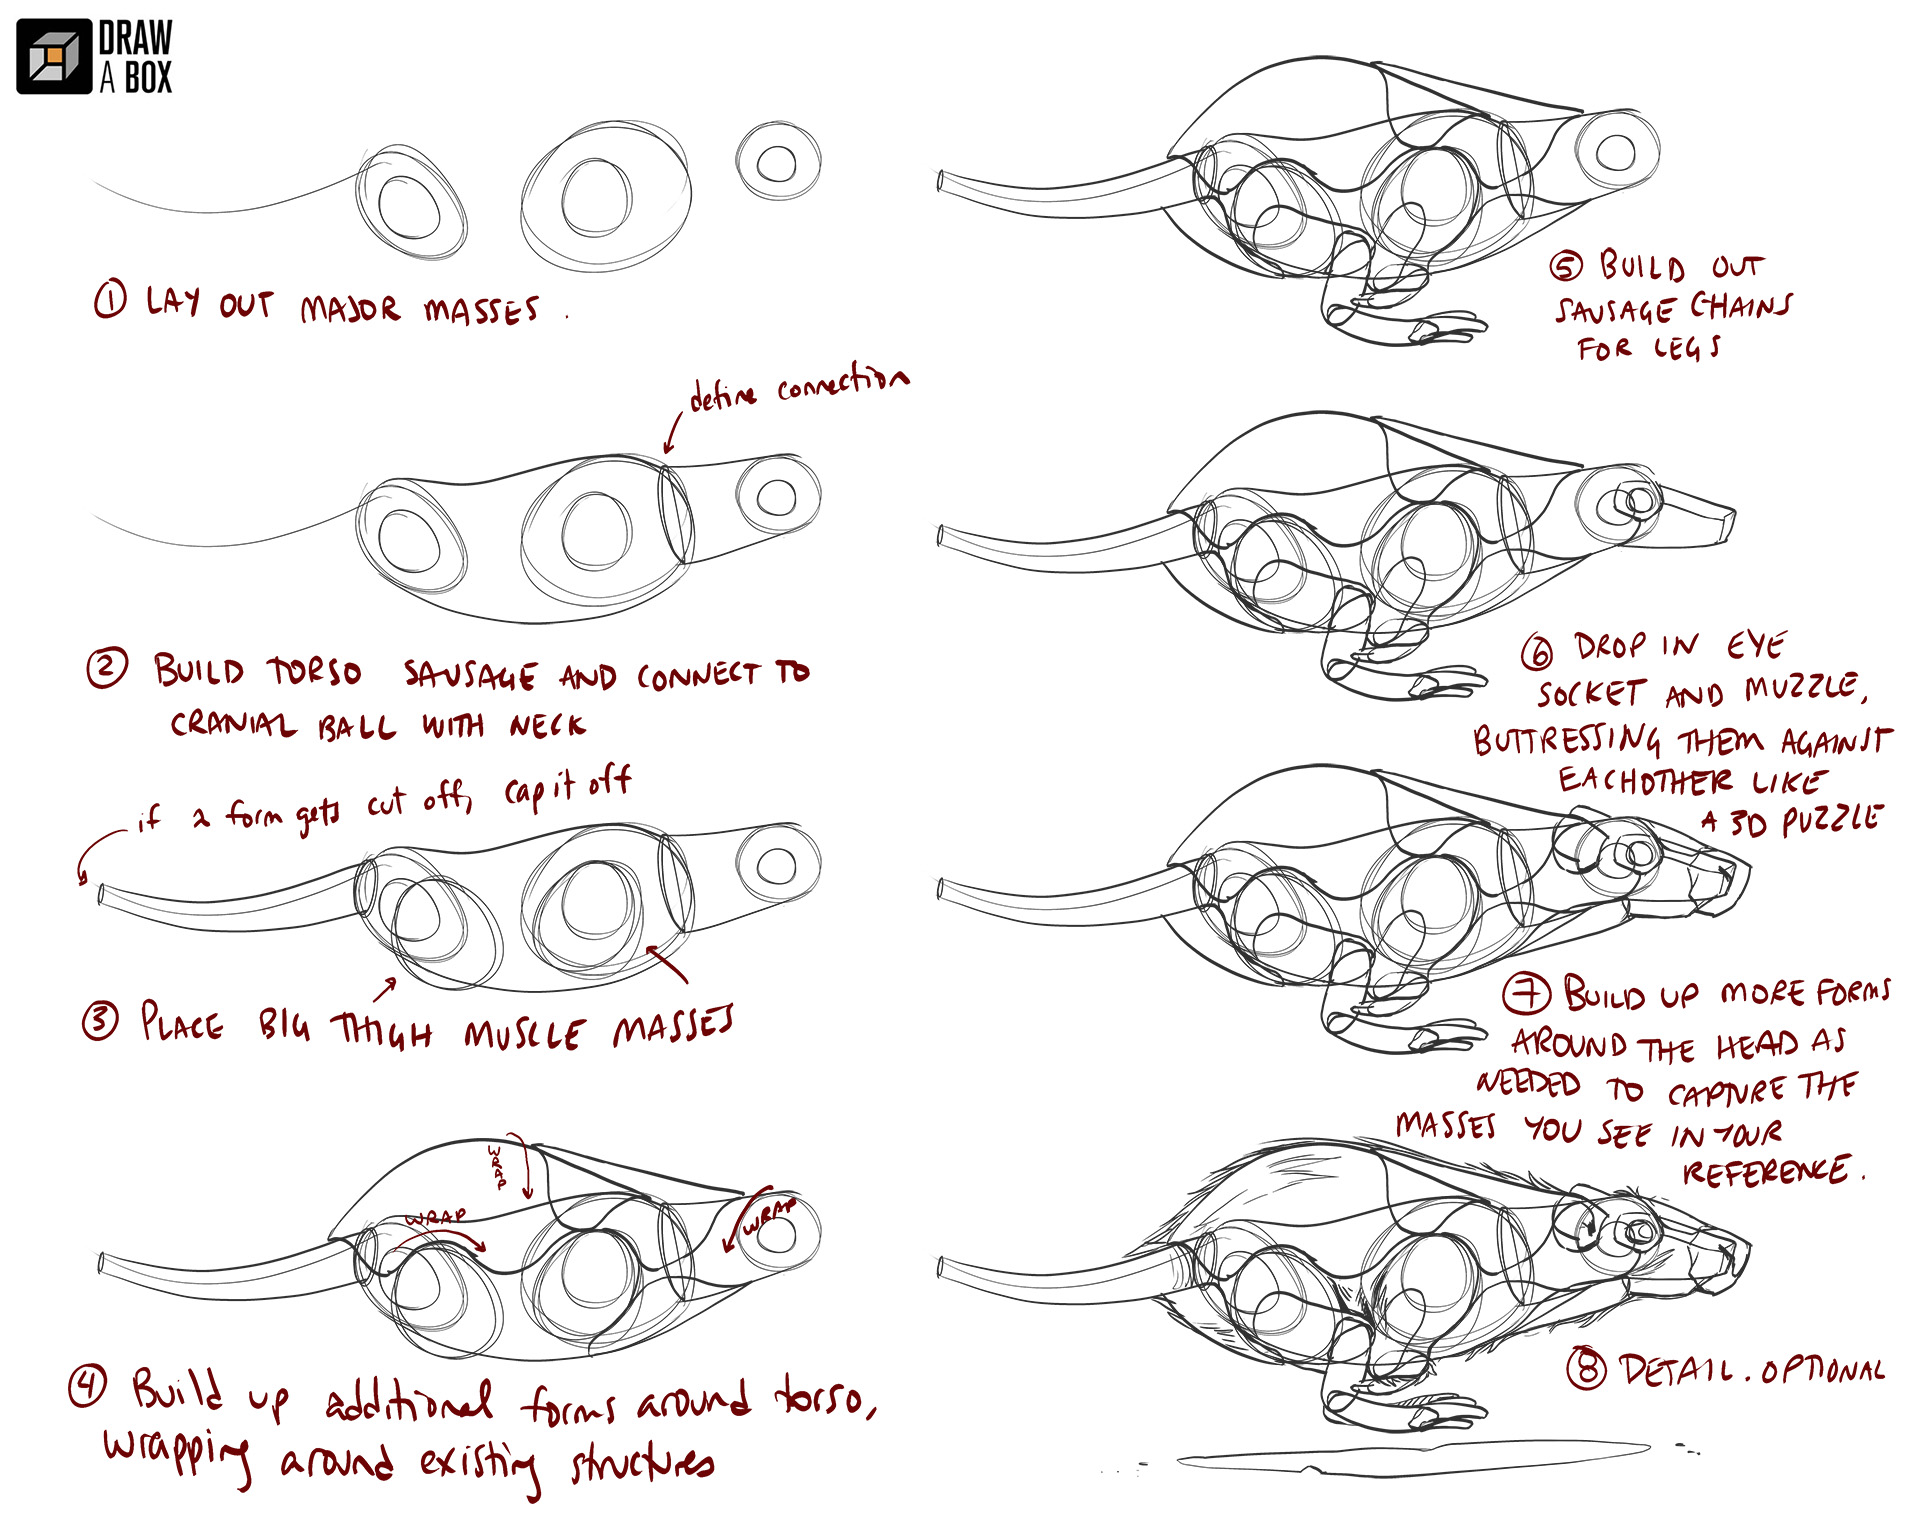 DRAW
A BOX
① LAY OUT MAJOR MASSES.
define connection
② BUILD TORSO SAUSAGE AND CONNECT TO
CRANIAL BALL WITH NECK
if a form gets cut off, cap it off
③ PLACE BIG THIGH MUSCLE MASSES
WRAP
WRAP
WRAP
④ Build up additional forms around torso,
wrapping around existing structures
⑤ BUILD OUT
SAUSAGE CHAINS
FOR LEGS
⑥ DROP IN EYE
SOCKET AND MUZZLE,
BUTTRESSING THEM AGAINST
EACHOTHER LIKE
A 3D PUZZLE
⑦ BUILD UP MORE FORMS
AROUND THE HEAD AS
NEEDED TO CAPTURE THE
MASSES YOU SEE IN YOUR
REFERENCE.
⑧ DETAIL. OPTIONAL